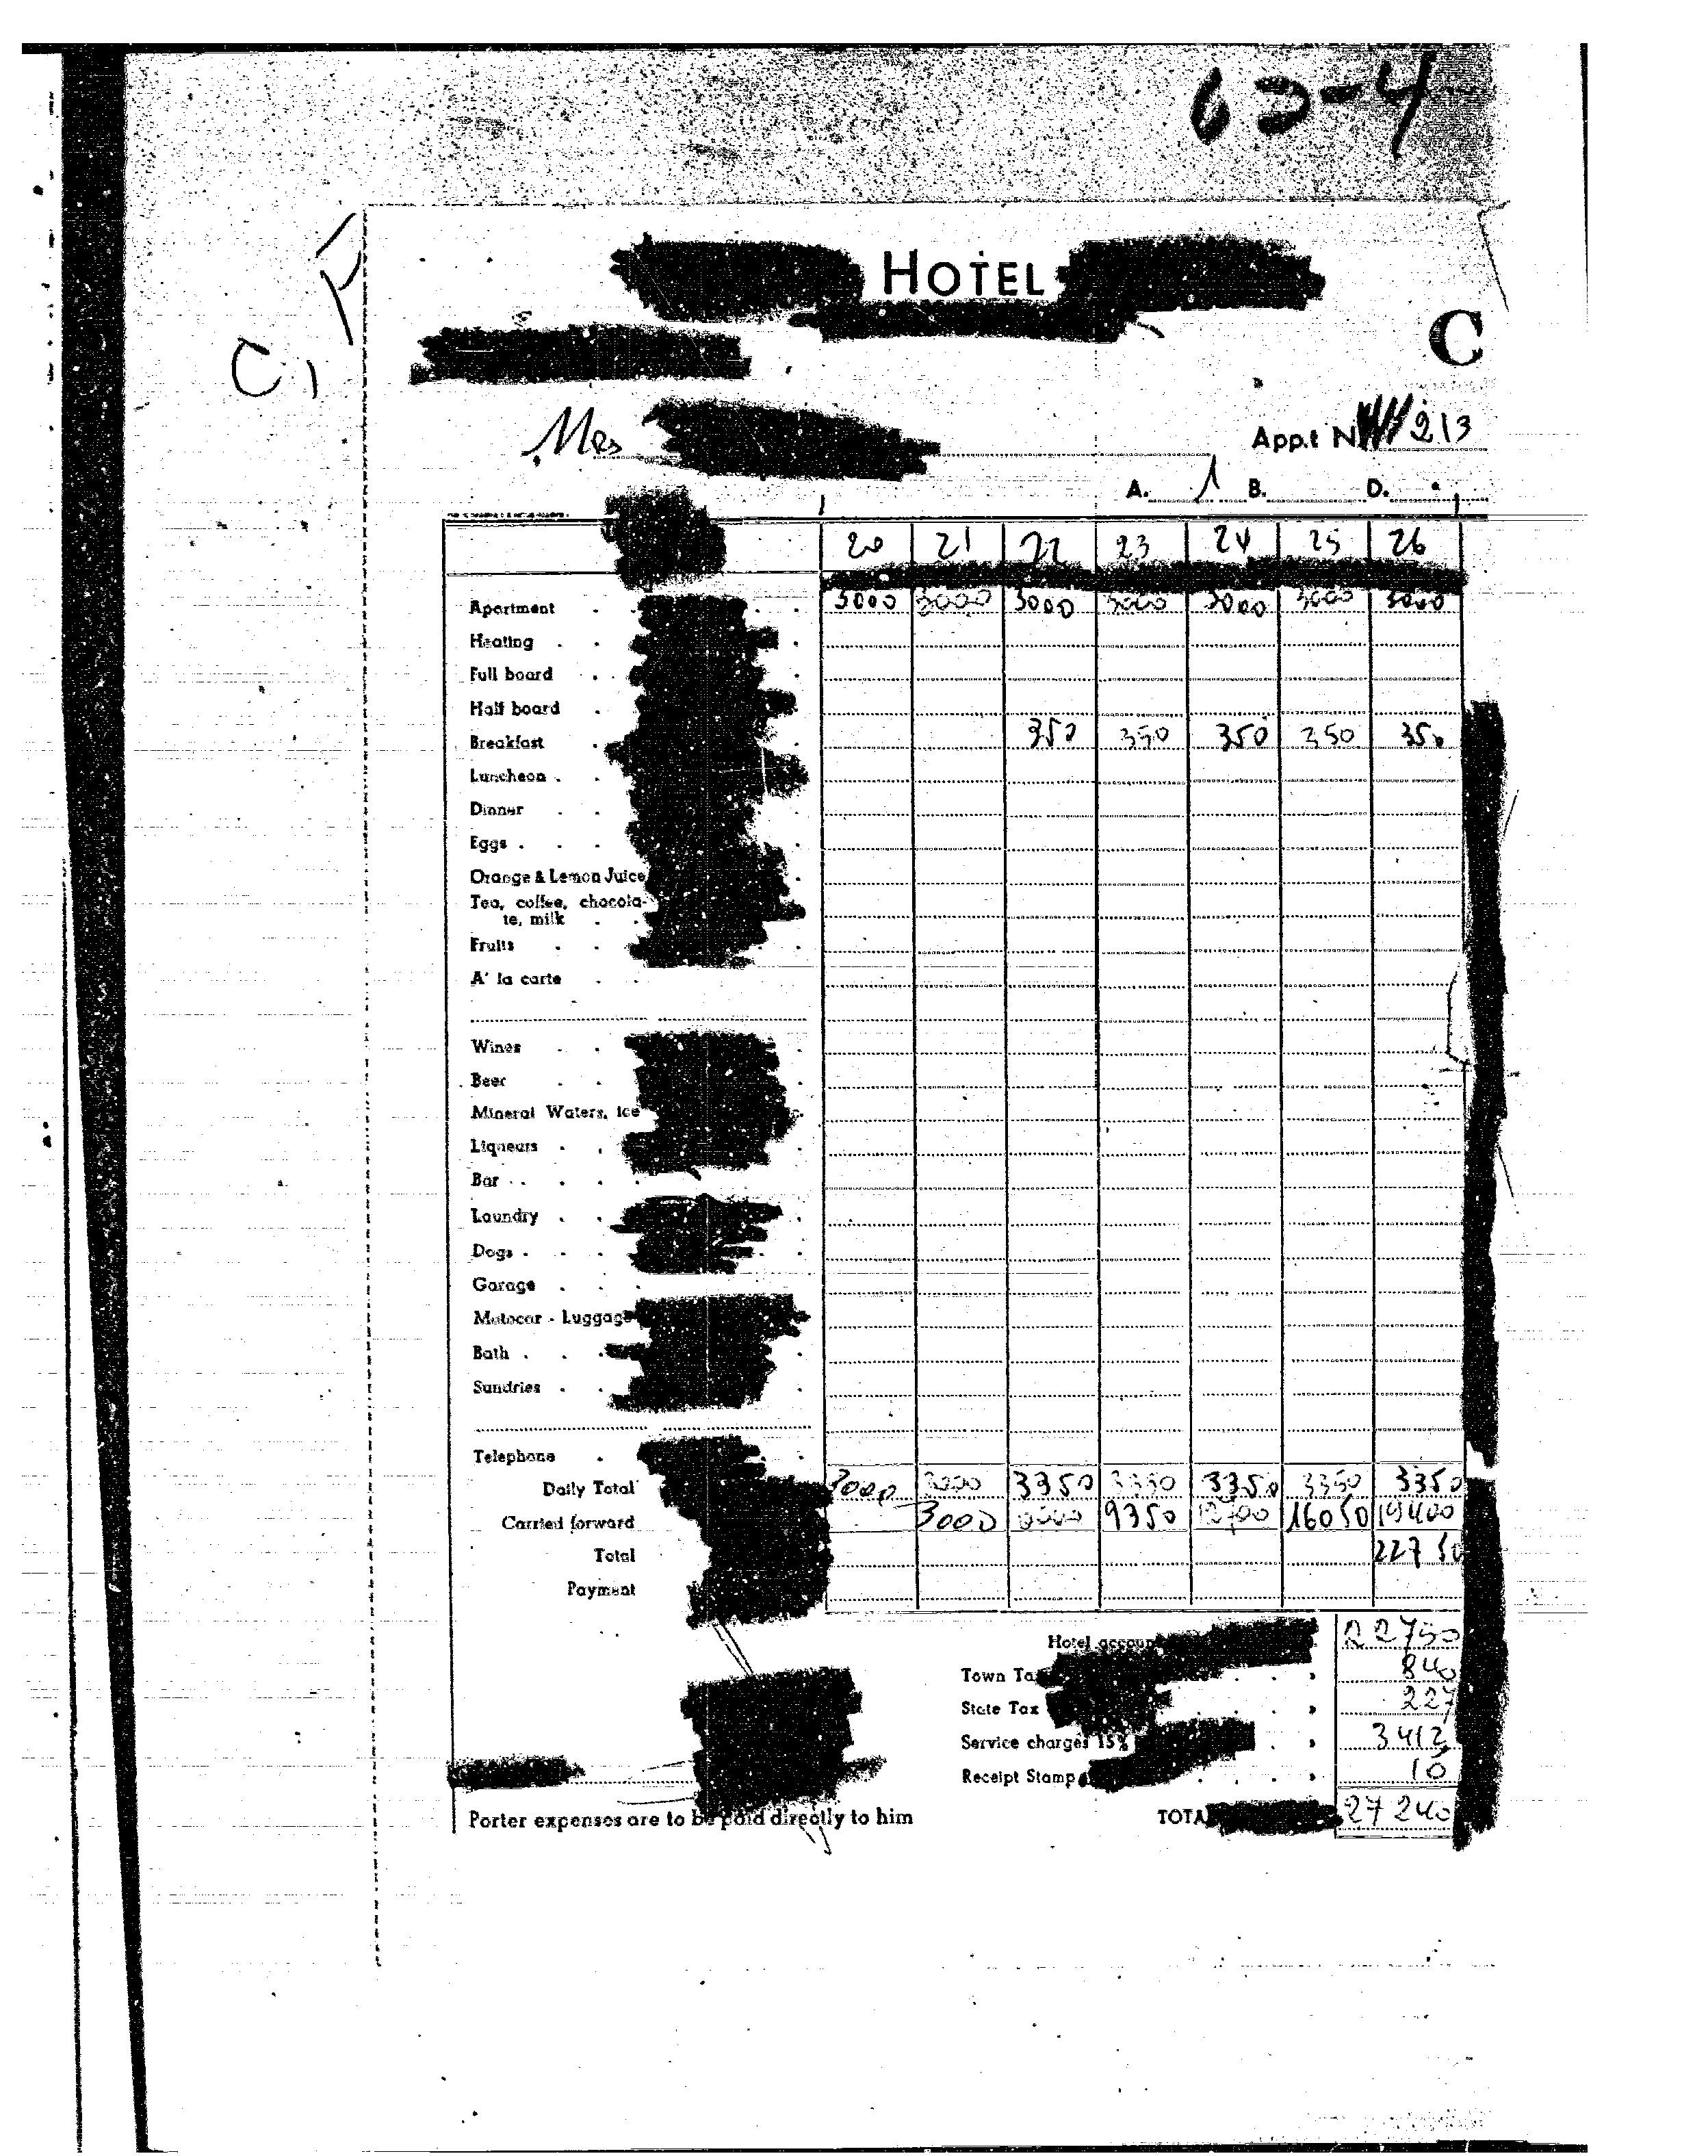 63-4
HOTEL
C
Mrs
App.t N 213
A. 1 B. D.
20 21 22 23 24 25 26
Apartment 3000 3000 3000 3000 3000 3000 3000
Heating
Full board
Half board
Breakfast 350 350 350 350 350
Luncheon
Dinner
Eggs
Orange & Lemon Juice
Tea, coffee, chocola-
te, milk
Fruits
A' la carte
Wines
Beer
Mineral Waters, ice
Liqueurs
Bar
Laundry
Dogs
Garage
Motocar - Luggage
Bath
Sundries
Telephone
Daily Total 3000 3000 3350 3350 3350 3350 3350
Carried forward 3000 6000 9350 12700 16050 19400
Total 22750
Payment
Hotel account 22750
Town Tax 840
State Tax 227
Service charges 15% 3412
Receipt Stamp 10
Porter expenses are to be paid directly to him
TOTA 27240